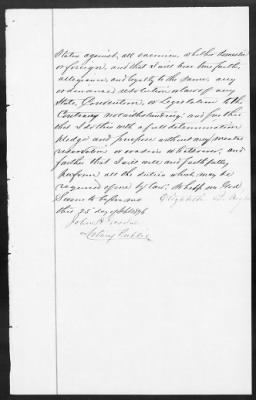 States against, all enemies, whether domestic
or foreign, and that I will bear true faith,
allegiance, and loyalty to the same, any
ordinance, resolution or law of any
State, Convention, or Legislation to the
Contrary notwithstanding: and further
that I do this with a full determination
pledge and purpose without any mental
reservation or evasion whatsoever, and
further that I will well and faithfully
perform all the duties which may be
required of me by law. So help me God
Sworn to before me Elizabeth
this 25 day of
John
Notary Public